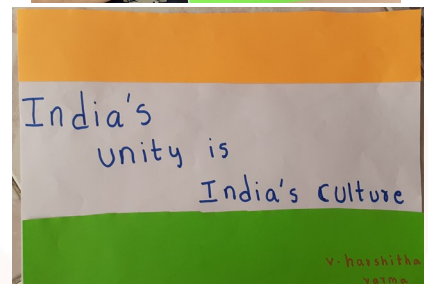 India's
unity is
India's culture
v. harshitha
varma